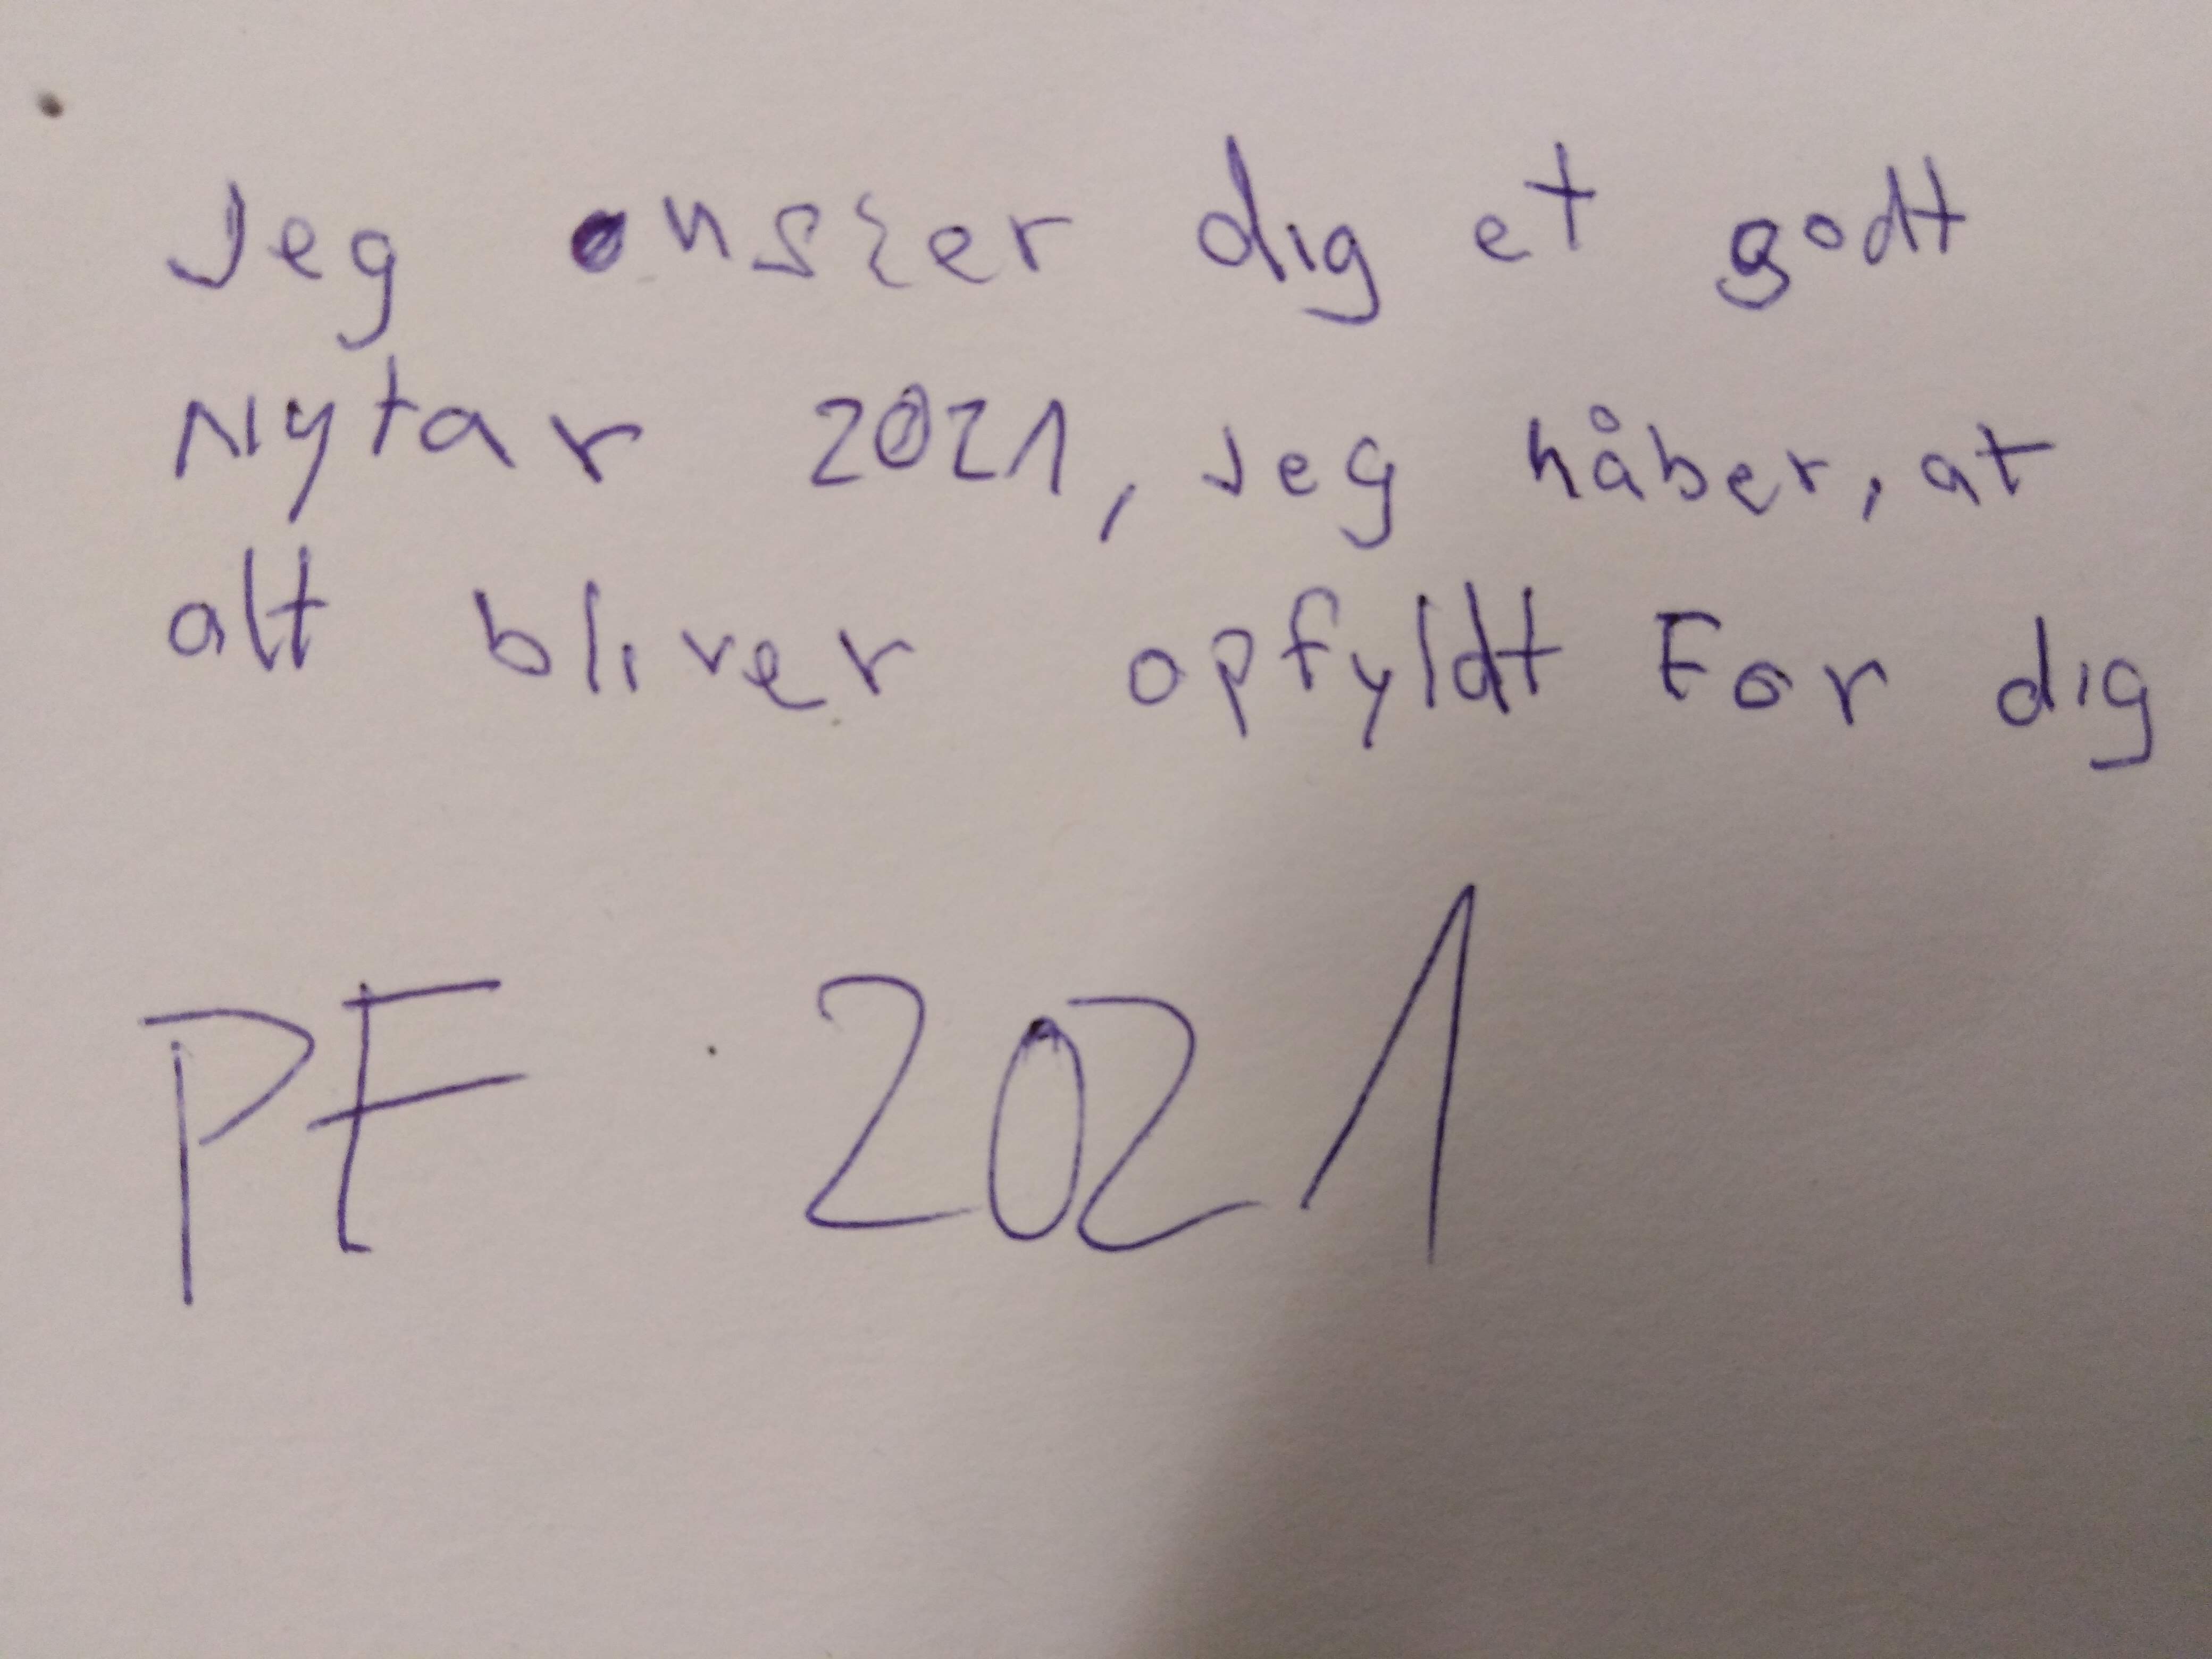 Jeg ønsker dig et godt
Nytar 2021, Jeg håber, at
alt bliver opfyldt For dig
PF 2021